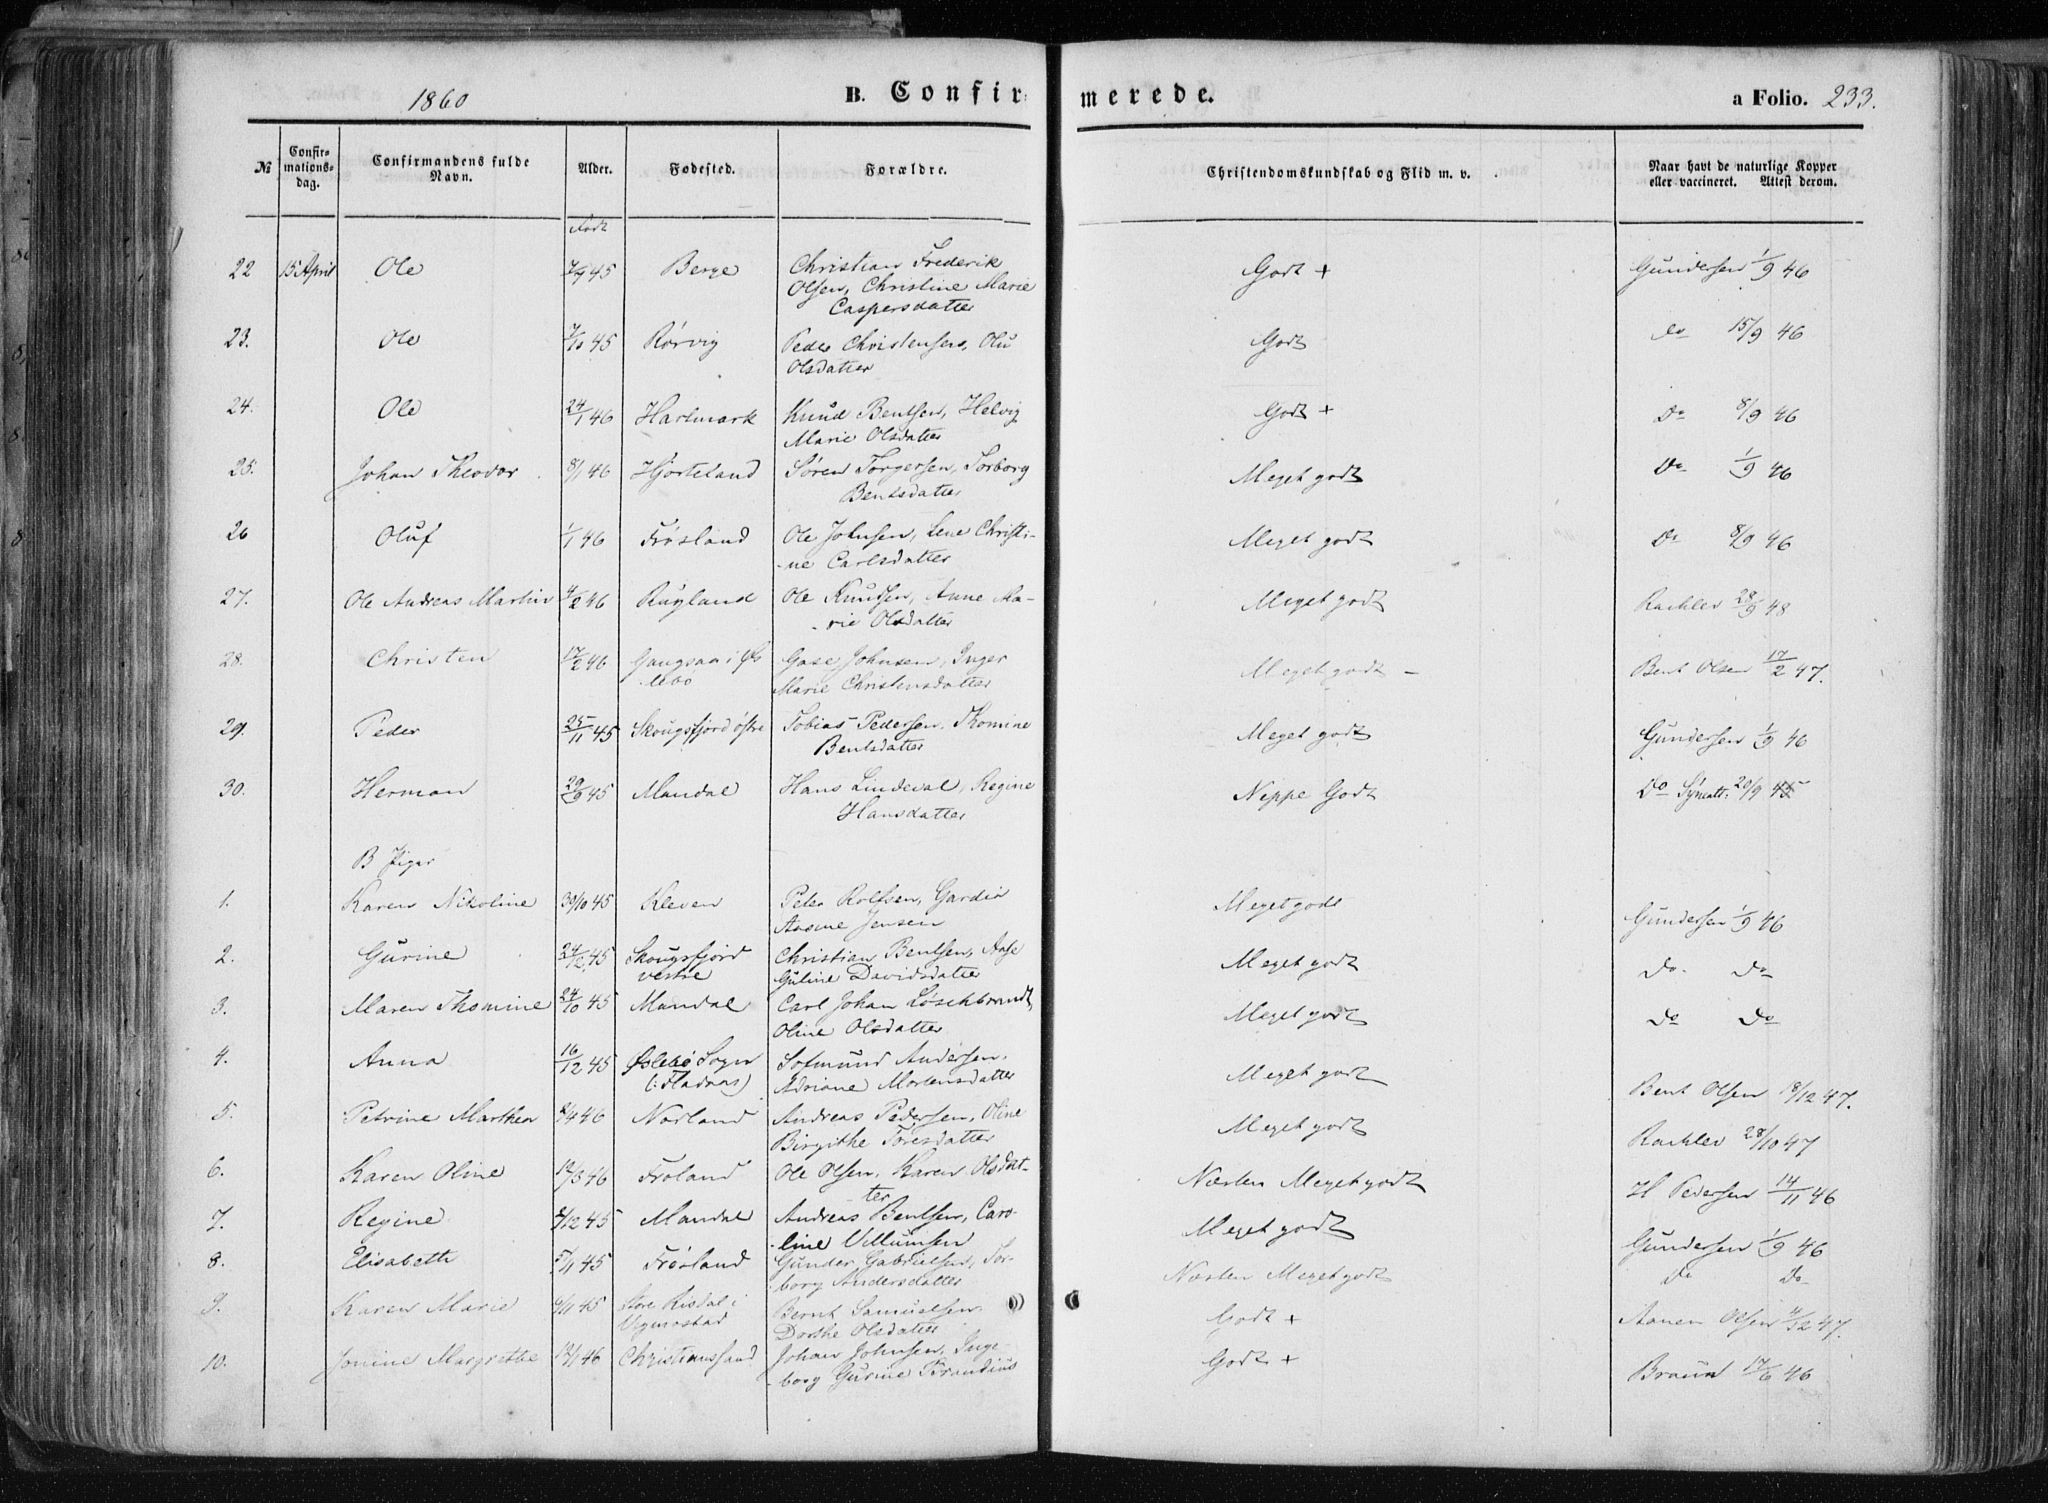 1860 B. Confirmerede. a Folio. 233.
№ Confirmationsdag. Confirmandens fulde Navn. Alder. Fødested. Forældre. Christendomskundskab og Flid m. v. Naar havt de naturlige Kopper eller vaccineret. Attest derom.
Født
22 15 April Ole 45 Berge Christian Frederik Godt + Gundersen 1/9 46
Olsen, Christine Marie
Caspersdatter
23. Ole 7/10 45 Rørvig Peder Christensen, Olu Godt do 15/9 46
Olsdatter
24. Ole 24/1 46 Hartmark Knud Bentsen, Helvig Godt + Do 8/9 46
Marie Olsdatter
25. Johan Theodor 8/1 46 Hjorteland Søren Torgersen, Torborg Meget godt Do 1/9 46
Bentsdatter
26 Oluf 1/1 46 Frøsland Ole Johnsen, Lene Christi- Meget godt Do 8/9 46
-ne Carlsdatter
27. Ole Andreas Martin 4/2 46 Røyland Ole Knudsen, Anne Ma- Meget godt Rachlev 28/9 48
-rie Olsdatter
28. Christen 17/2 46 Gangsaa i Øs Gase Johnsen, Inger Meget godt - Bent Olsen 17/2 47.
lebo Marie Christensdatter
29. Peder 25/11 45 Skougsfjord østre Tobias Pedersen, Thomine Meget godt Gundersen 1/9 46
Bentsdatter
30. Herman 29/9 45 Mandal Hans Lindeval, Regine Neppe Godt Do Syneatt. 20/9 45
Hansdatter
B Piger
1. Karen Nikoline 30/10 45 Kleven Peter Rolfsen, Gardia Meget godt Gundersen 1/9 46
Aasine Jensen
2. Gurine 24/12 45 Skougsfjord Christian Bentsen, Aase Meget godt Do. Do
vestre Guline Davidsdatter
3. Maren Thomine 24/10 45 Mandal Carl Johan Løschbrandt, Meget godt Do Do
Oline Olsdatter
4. Anna 16/12 45 Øslebø Sogn Sofmund Andersen, Meget godt Bent Olsen 18/12 47.
(: Fladaas) Adriane Mortensdatter
5. Petrine Marthea 2/4 46 Nodland Andreas Pedersen, Oline Meget godt Rachlev 28/10 47
Birgithe Toresdatter
6. Karen Oline 12/3 46 Frøland Ole Olsen, Karen Olsdat- Næsten Meget godt H Pedersen 14/11 46
ter
7. Regine 45 Mandal Andreas Bentsen, Caro- Meget godt Gundersen 1/9 46
-line Villumsen
8. Elisabeth 5/11 45 Frøsland Gunder Gabrielsen, Tor- Næsten Meget godt Do Do
borg Andersdatter
9. Karen Marie 6/11 45 Store Risdal i Bernt Samuelsen Godt + Aanen Olsen 4/12 47.
Vigmostad Dorthe Olsdatter
10. Jonine Margrethe 12/1 46 Christianssand Johan Johnsen, Inge- Godt + Braun 17/6 46
-borg Gurine Brandius